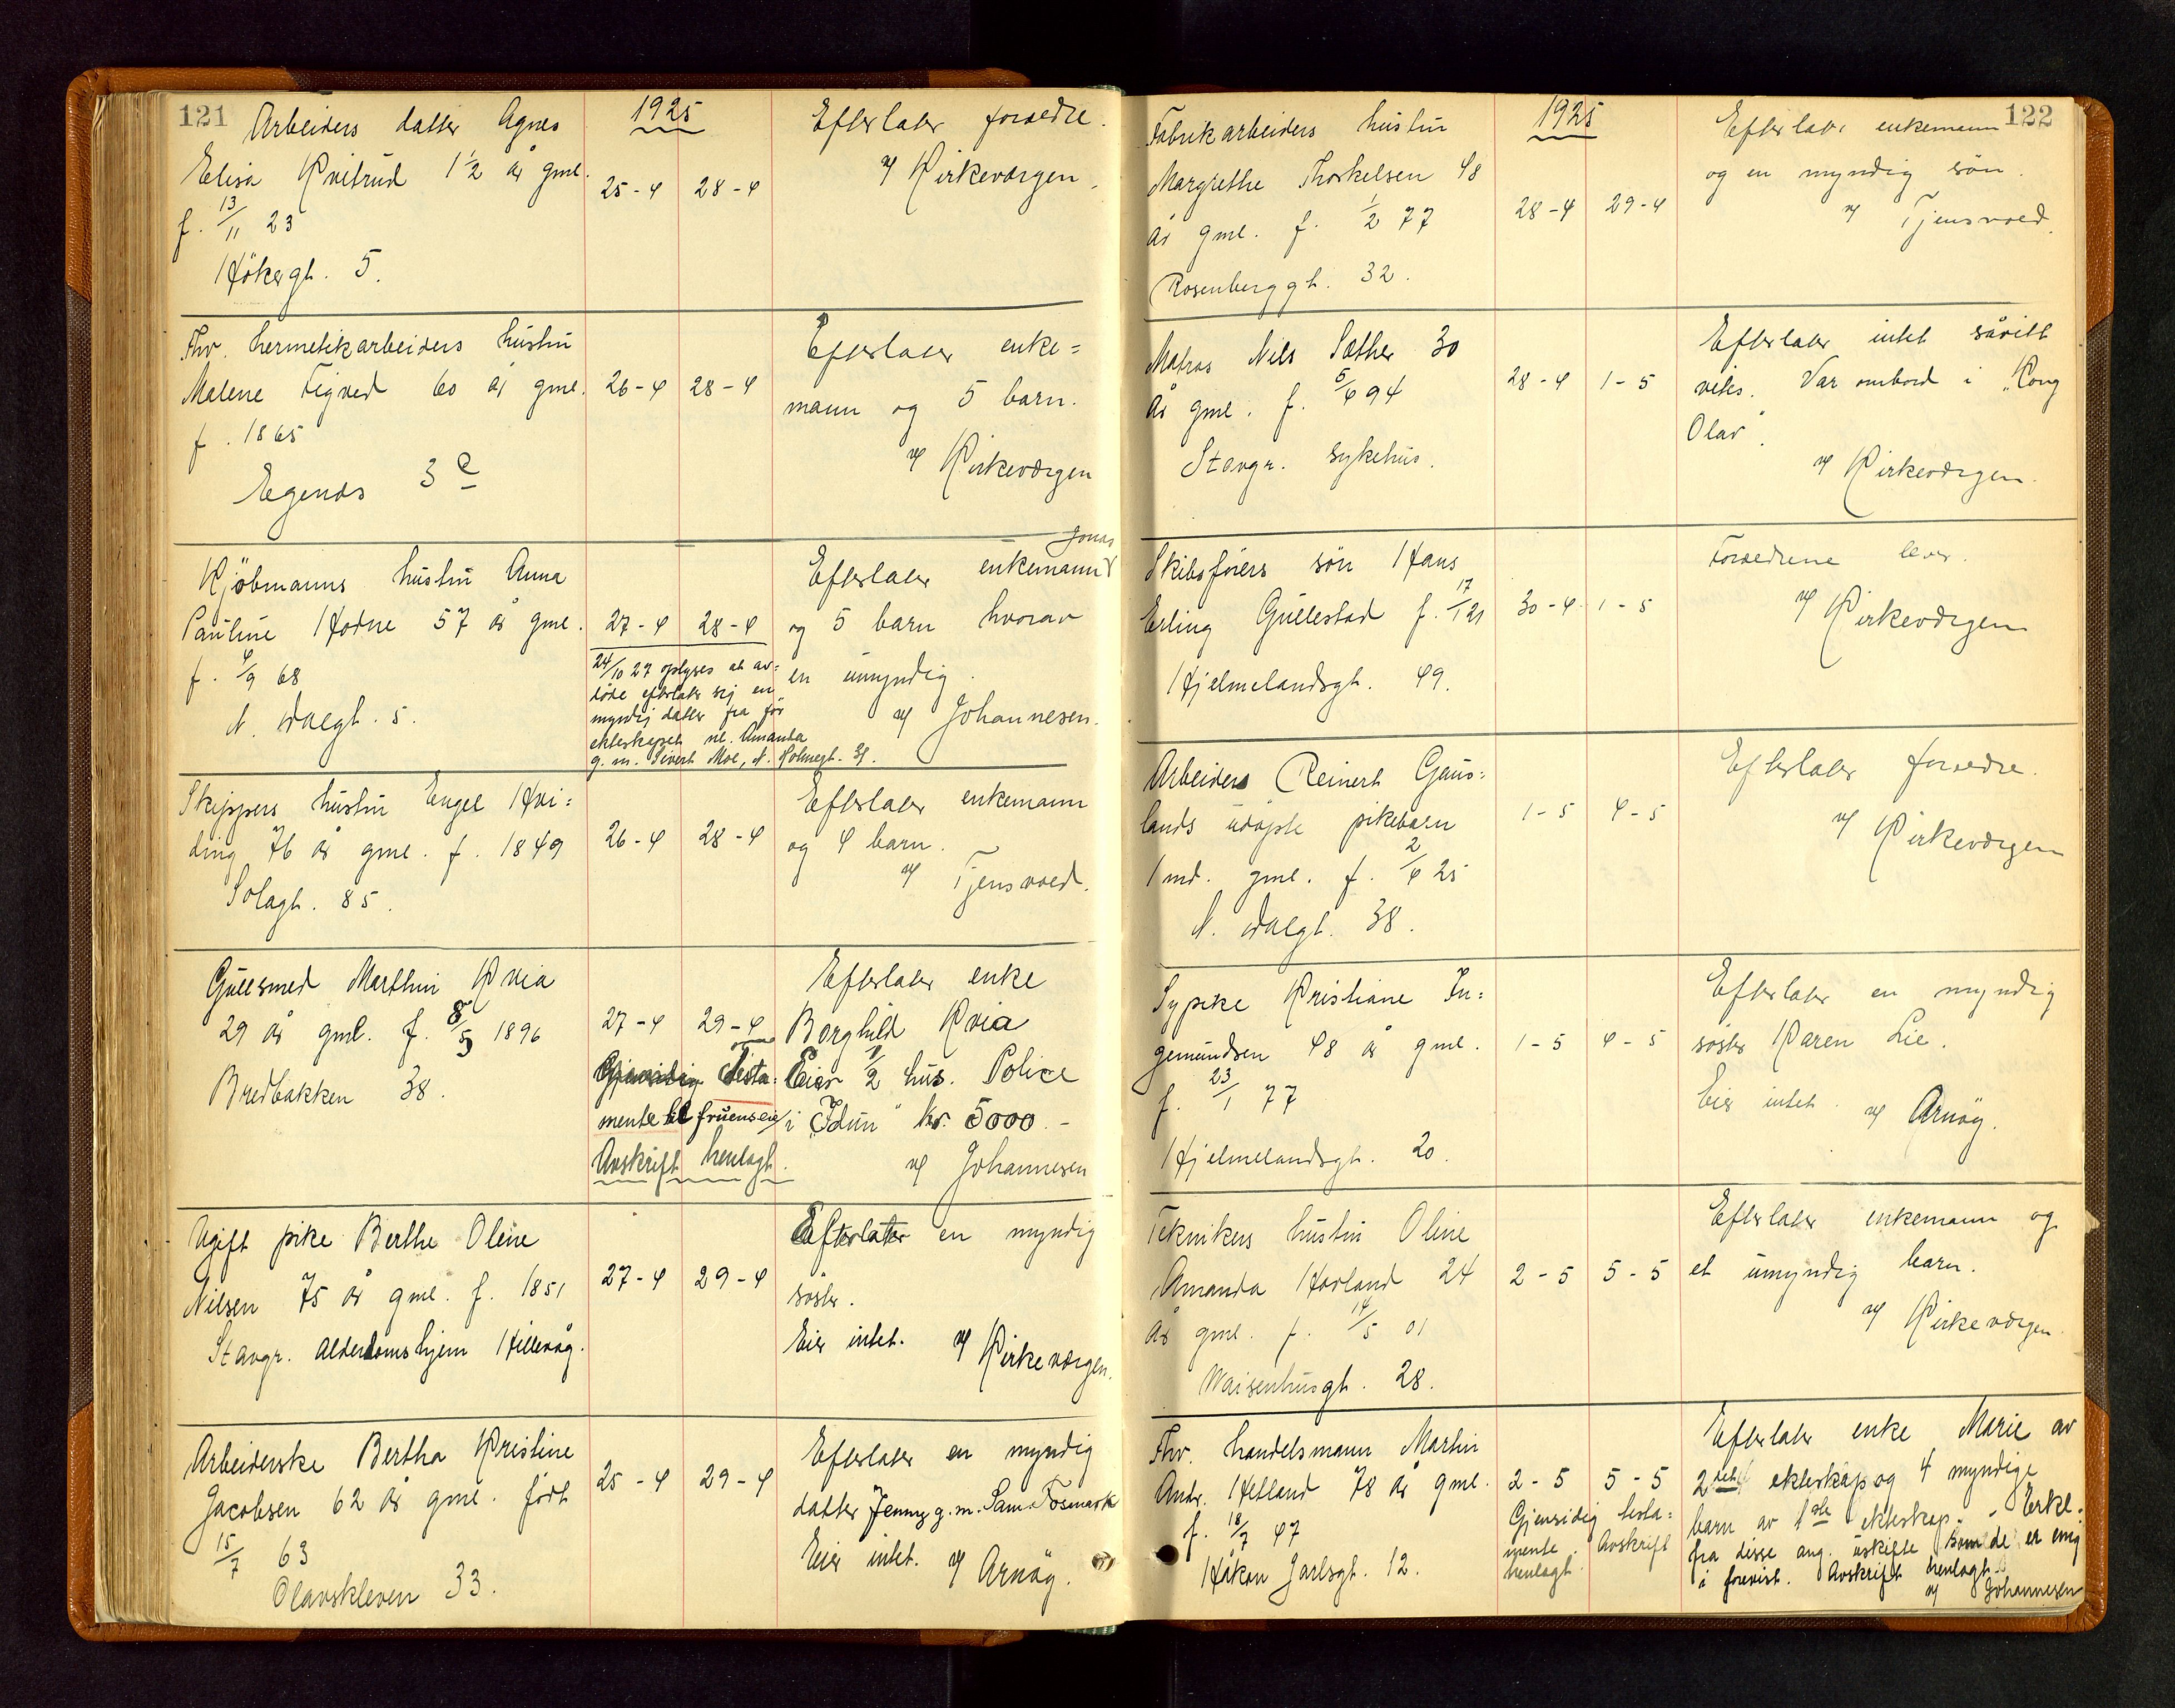 121
Arbeiders datter Agnes
Elisa Kvitrud 1½ år gml.
f. 13/11 23
Hökergt. 5.
1925
25-4 28-4
Efterlater foreldre.
v/ Kirkeværgen.
Fhv. hermetikarbeiders hustru
Malene Tigved 60 år gml.
f. 1865
Egenæs 3 e
26-4 28-4
Efterlater enke=
mann og 5 barn.
v/ Kirkeværgen
Kjöbmanns hustru Anna
Pauline Hodne 57 år gml.
f. 4/9 68
N. Dalgt. 5.
27-4 28-4
24/10 27 oplyses at av=
döde efterlater sig en
myndig datter fra för
ekteskapet nl. Amanda
g. m. Sivert Moe, N. Holmegt. 31.
Jonas
Efterlater enkemann
og 5 barn hvorav
en umyndig.
v/ Johannesen.
Skippers hustru Engel Hvi=
ding 76 år gml. f. 1849
Solagt. 85.
26-4 28-4
Efterlater enkemann
og 4 barn.
v/ Tjensvold.
Gullsmed Marthin Kvia
29 år gml. f. 8/5 1896
Bredbakken 38.
27-4 29-4
Gjensidig testa=
mente til fruens eie
Avskrift henlagt.
Efterlater enke
Borghild Kvia
Eier ½ hus. Police
i "Idun" kr. 5000.-
v/ Johannesen
Ugift pike Berthe Oline
Nilsen 75 år gml. f. 1851
Stavgr. Alderdomshjem Hillevåg.
27-4 29-4
Efterlater en myndig
söster.
Eier intet. v/ Kirkeværgen.
Arbeiderske Bertha Kristine
Jacobsen 62 år gml. födt
15/7 63
Olavskleven 33.
25-4 29-4
Efterlater en myndig
datter Jenny g. m. Sam. Fosmark
Eier intet. v/ Arnöy.
122
Fabrikarbeiders hustru
Margrethe Thorkelsen 48
år gml. f. 1/2 77
Rosenberggt. 32.
1925
28-4 29-4
Efterlater enkemann
og en myndig sön.
v/ Tjensvold.
Matros Nils Sæther 30
år gml. f. 5/6 94
Stavgr. sykehus.
28-4 1-5
Efterlater intet såvitt
vites. Var ombord i "Kong
Olav".
v/ Kirkeværgen.
Skibsförers sön Hans
Erling Gullestad f. 17/1 21
Hjelmelandsgt. 49.
30-4 1-5
Foreldrene lever.
v/ Kirkeværgen
Arbeiders Reinert Gaus=
lands udöpte pikebarn
1 md. gml. f. 2/4 25
N. Dalgt. 38.
1-5 4-5
Efterlater foreldre.
v/ Kirkeværgen
Sypike Kristiane In=
gemundsen 48 år gml.
f. 23/1 77
Hjelmelandsgt. 20.
1-5 4-5
Efterlater en myndig
söster Karen Lie.
Eier intet. v/ Arnöy.
Teknikers hustru Oline
Amanda Havland 24
år gml. f. 14/5 01
Waisenhusgt. 28.
2-5 5-5
Efterlater enkemann og
et umyndig barn.
v/ Kirkeværgen.
Fhv. handelsmann Martin
Andr. Hetland 78 år gml.
f. 18/7 47
Håkon Jarlsgt. 12.
2-5 5-5
Gjensidig testa=
mente. Avskrift
henlagt.
Efterlater enke Marie av
2det ekteskap og 4 myndige
barn av 1ste ekteskap. - Erkl.
fra disse ang. uskifte som de er enig
i forevist. Avskrift henlagt.
v/ Johannesen